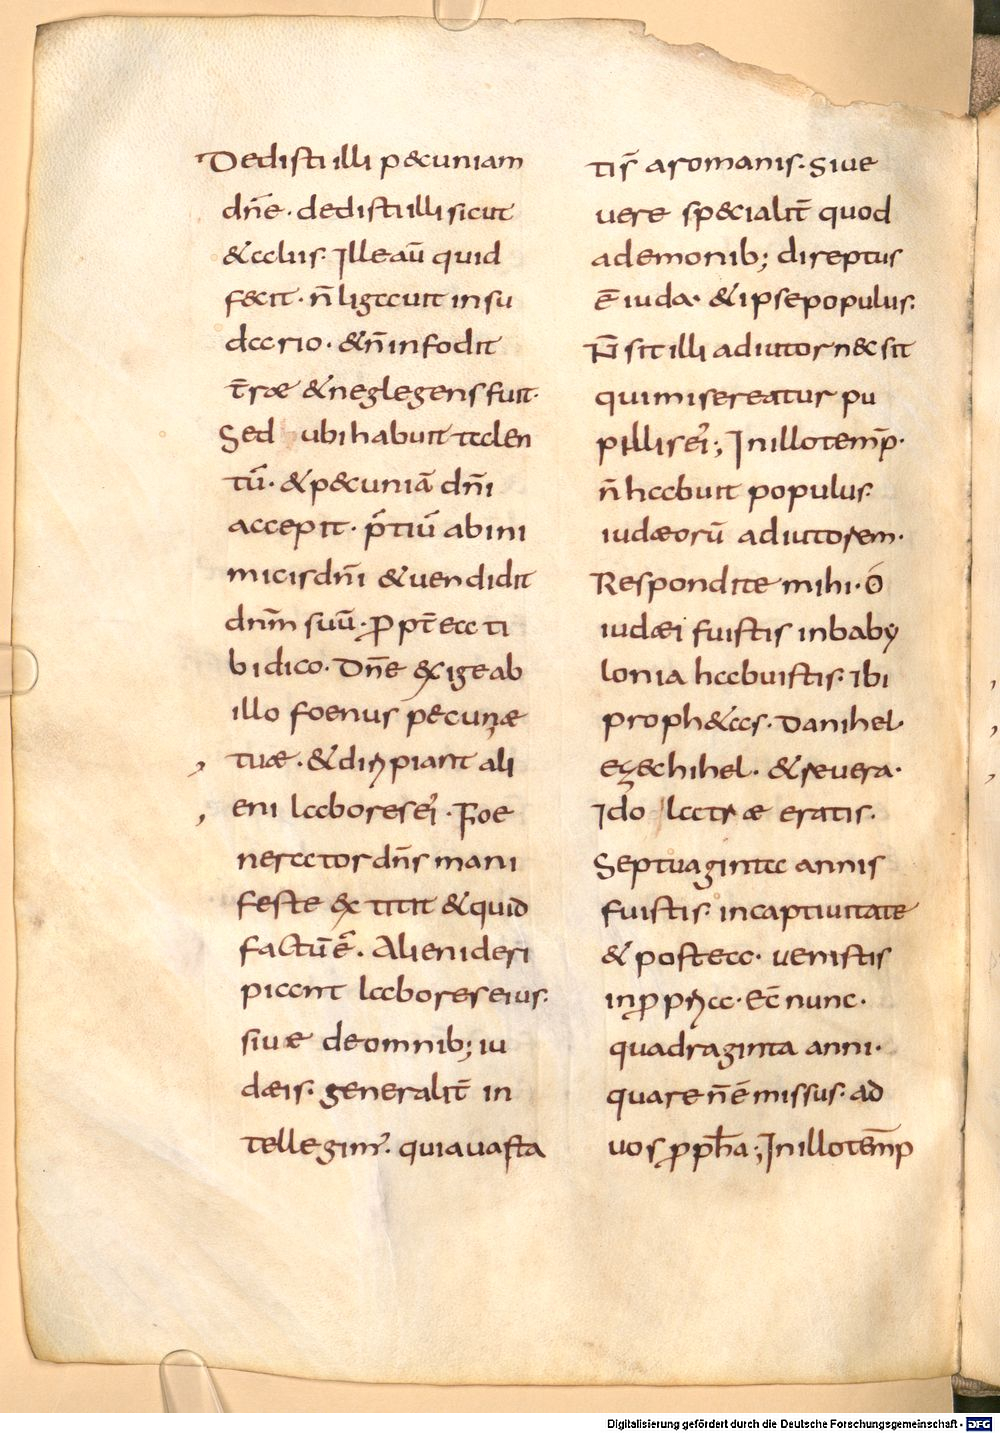 Dedisti illi pecuniam
dn̄e · dedisti illi sicut
& aliis· Ille aū quid
fecit · n̄ ligauit in su
dario · & n̄ infodit
t̄ræ & neglegens fuit·
Sed ubi habuit talen
tū· & pecuniā dn̄i
accepit · p̄tiū ab ini
micis dn̄i & uendidit
dnm̄ suū · ꝓpt̄ea ti
bi dico· Dn̄e exige ab
illo foenus pecunæ
tuæ · & diripiant ali
eni labores ei· Foe
nerator dn̄s mani
feste extitit & quid
factū ē· Alieni deri
piant labores eius·
siue de omnib; iu
dæis· generalit̄ in
tellegim· quia uasta
tis̄ a romanis· Siue
uere specialit̄ quod
a demonib; direptus
ē iuda· & ipse populus·
N̄ sit illi adiutor nec sit
qui misereatur pu
pilli· ei·; In illo temp̄·
n̄ habuit populus
iudæorū adiutorem·
Respondite mihi· Ó
iudæi fuistis in baby
lonia habuistis· Ibi
prophetas· Danihel·
ezechihel· & reuera·
Ido latræ eratis·
Septuaginta annis
fuistis· in captiuitate
& postea· uenistis
in ꝓpria· Ec̄ nunc·
quadraginta anni·
quare n̄ ē missus· ad
uos ꝓph̄a·; In illo temp̄
Digitalisierung gefördert durch die Deutsche Forschungsgemeinschaft - DFG